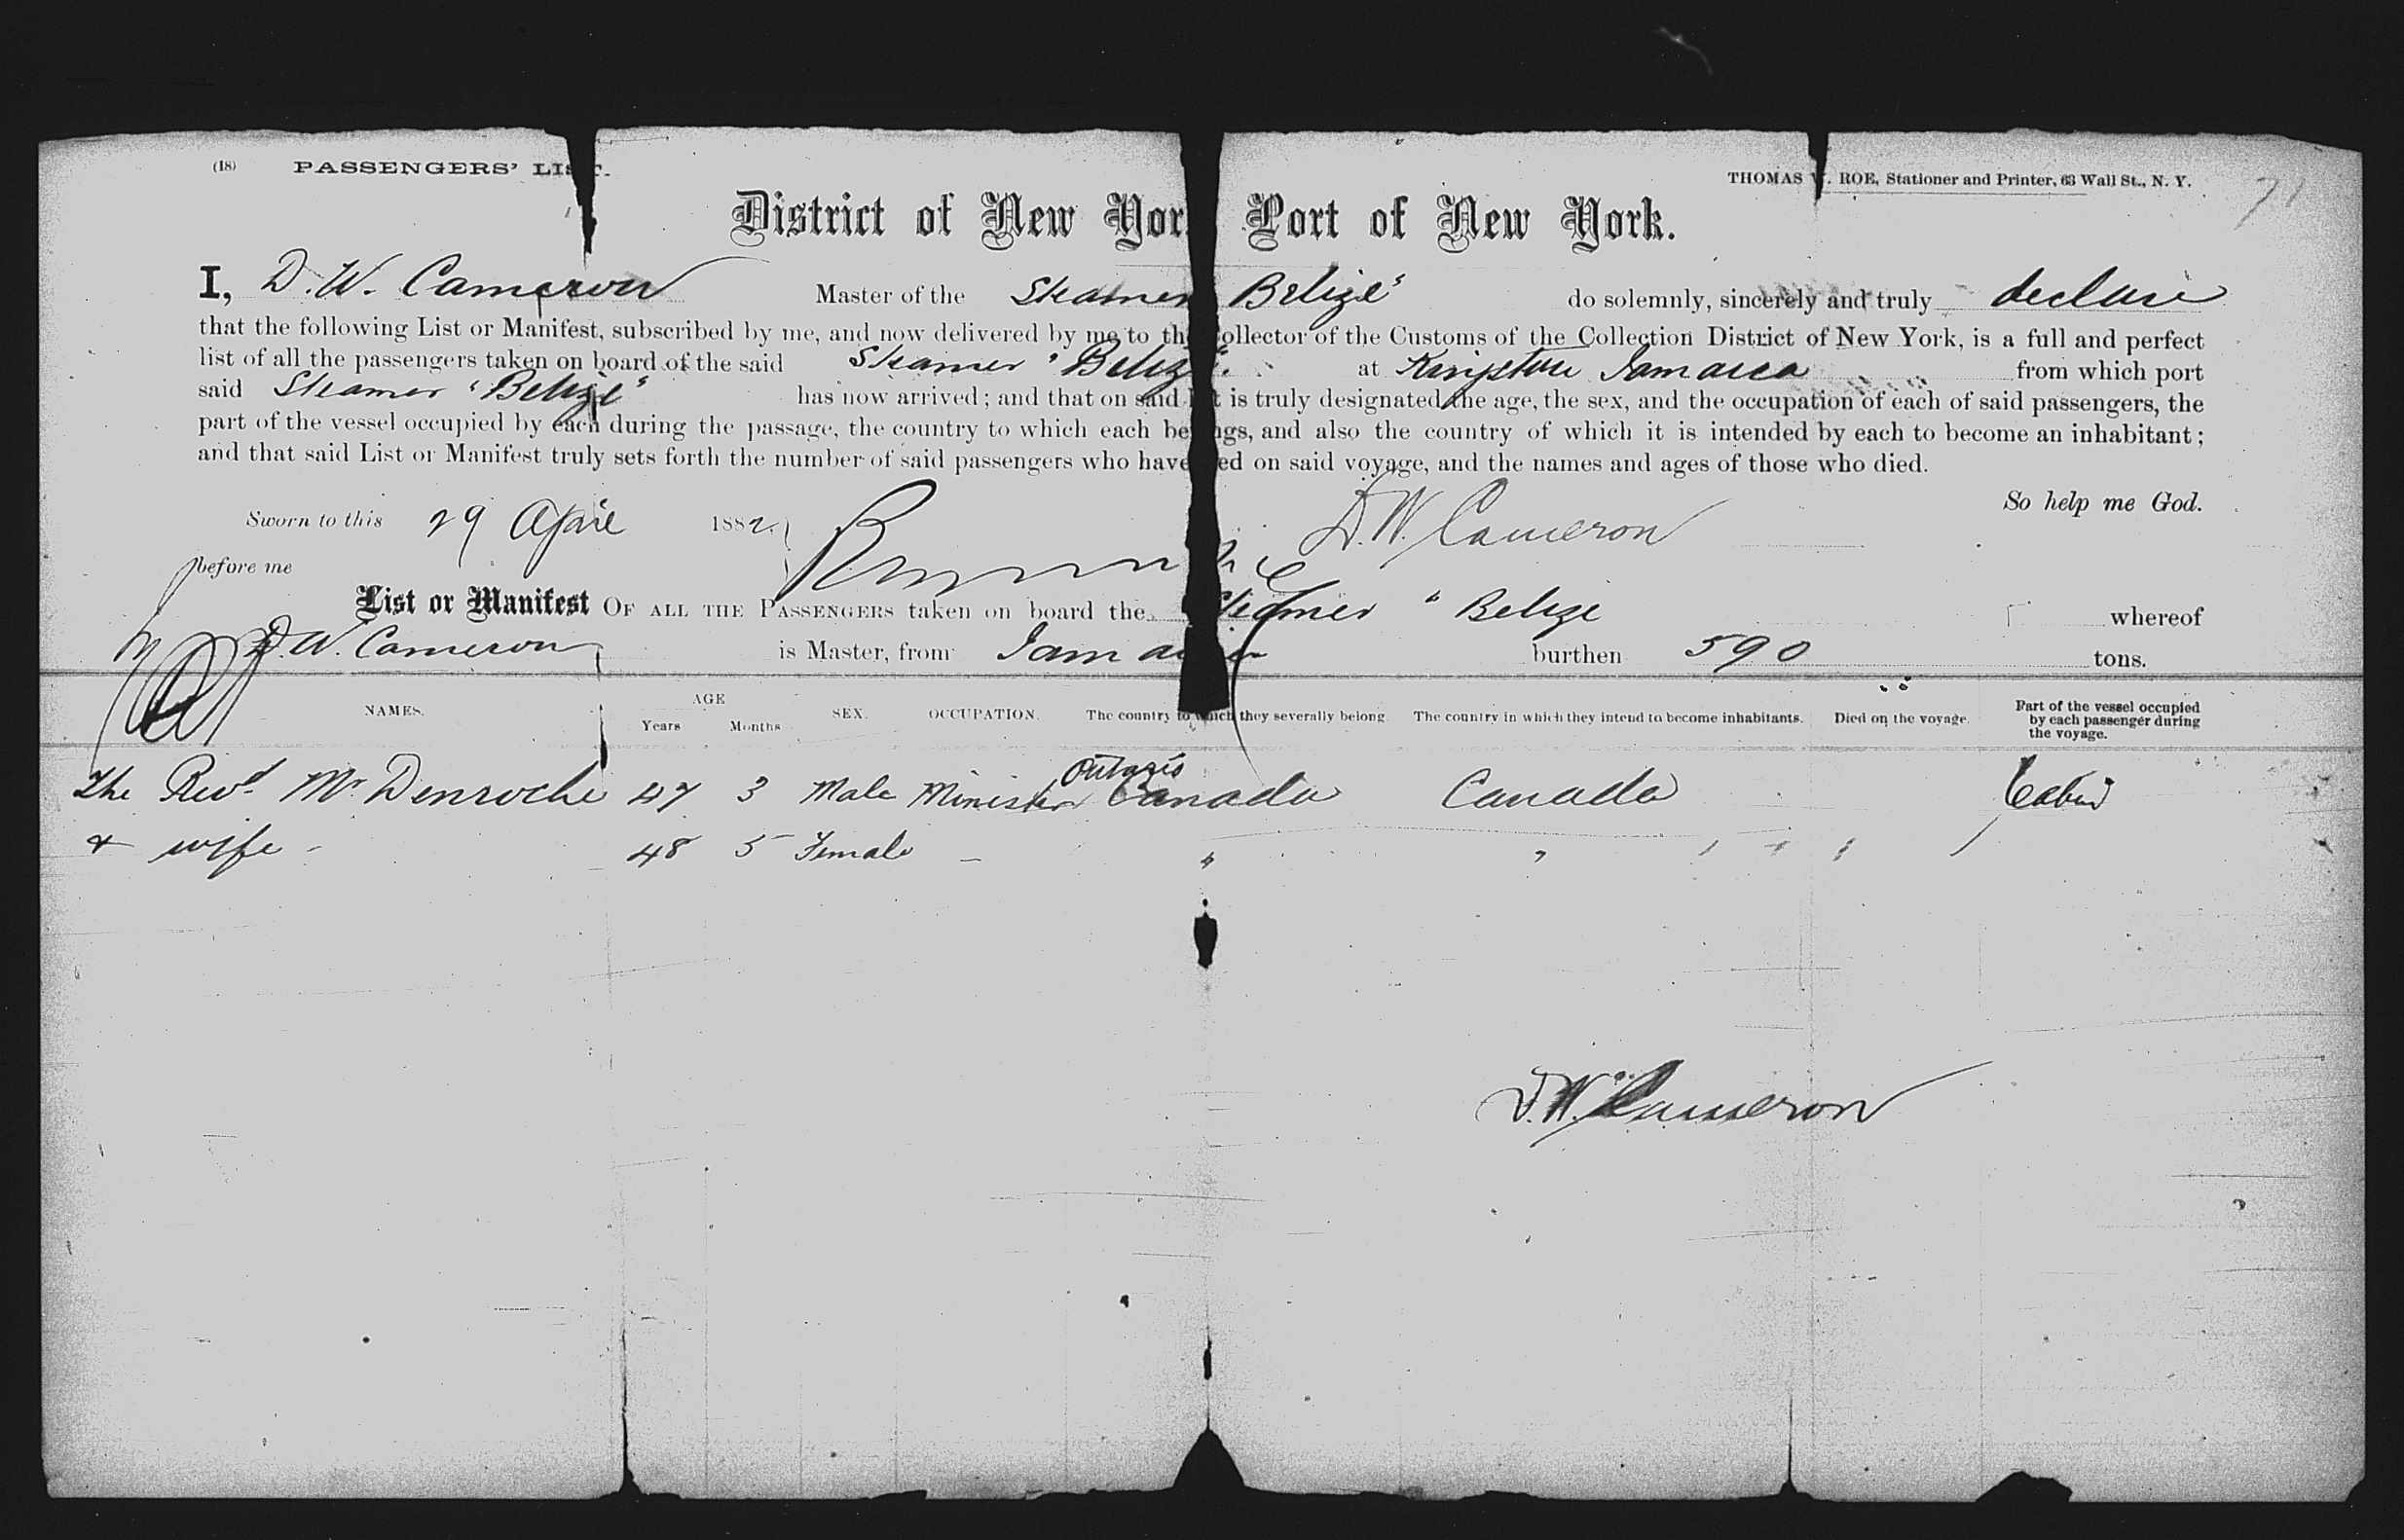 (18) PASSENGERS' LIST.
THOMAS W. ROE, Stationer and Printer, 63 Wall St., N. Y.
71
District of New York Port of New York.
I, D. W. Cameron Master of the Steamer Belize" do solemnly, sincerely and truly declare
that the following List or Manifest, subscribed by me, and now delivered by me to the Collector of the Customs of the Collection District of New York, is a full and perfect
list of all the passengers taken on board of the said Steamer "Belize". at Kingston Jamaica from which port
said Steamer "Belize" has now arrived; and that on said list is truly designated the age, the sex, and the occupation of each of said passengers, the
part of the vessel occupied by each during the passage, the country to which each belongs, and also the country of which it is intended by each to become an inhabitant;
and that said List or Manifest truly sets forth the number of said passengers who have died on said voyage, and the names and ages of those who died.
So help me God.
Sworn to this 29 April 1882. D. W. Cameron
before me
List or Manifest OF ALL THE PASSENGERS taken on board the Steamer " Belize whereof
D. W. Cameron is Master, from Jamaica burthen 590 tons.
NAMES. AGE Years Months SEX. OCCUPATION. The country to which they severally belong The country in which they intend to become inhabitants. Died on the voyage. Part of the vessel occupied by each passenger during the voyage.
The Revd. Mr. Denroche 47 3 Male Minister Canada Canada Cabin
& wife - 48 5 Female - " "
D. W. Cameron